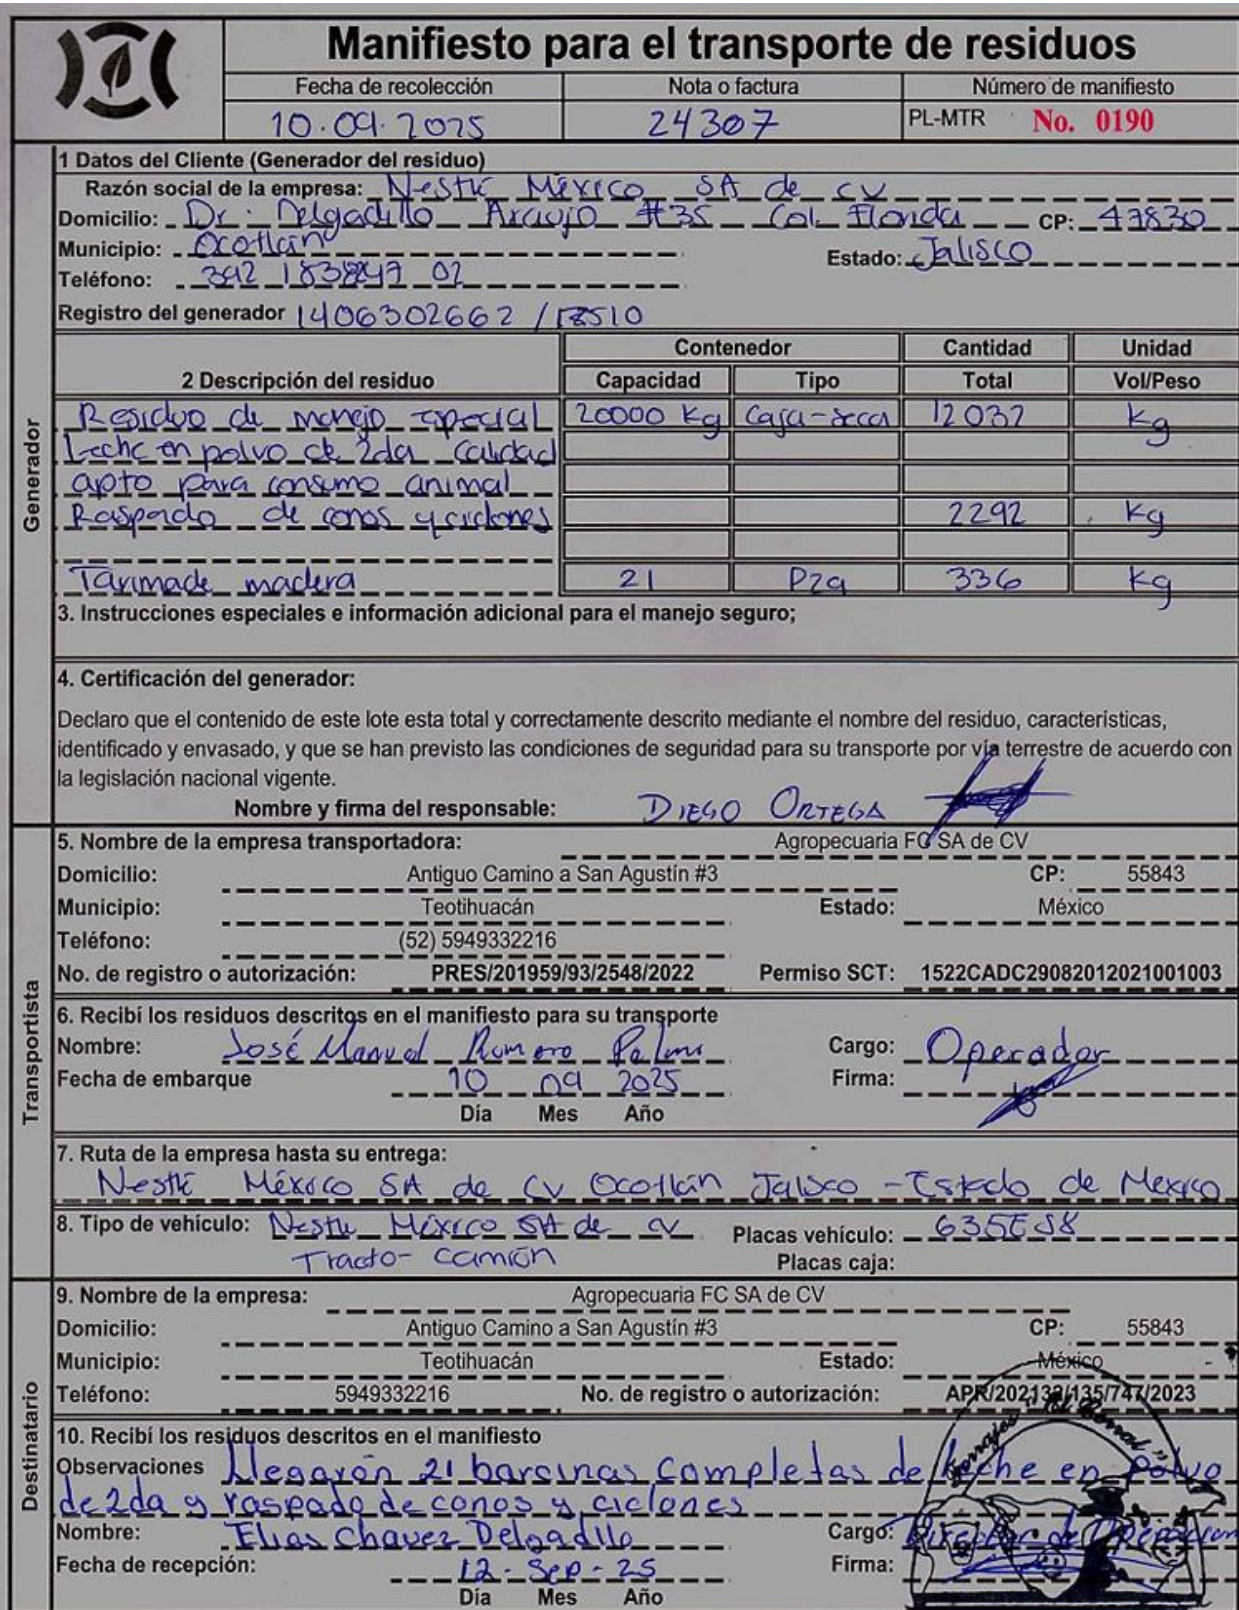 Manifiesto para el transporte de residuos
Fecha de recolección Nota o factura Número de manifiesto
10.09.2025 24307 PL-MTR No. 0190
1 Datos del Cliente (Generador del residuo)
Razón social de la empresa: Nestlé México SA de CV
Domicilio: Dr. Delgadillo Araujo #35 Col. Florida CP: 47830
Municipio: Ocotlán Estado: Jalisco
Teléfono: 02
Registro del generador 1406302662 /
Contenedor Cantidad Unidad
2 Descripción del residuo Capacidad Tipo Total Vol/Peso
Residuo de manejo especial 20000 Kg Caja-seca 12032 Kg
Leche en polvo de 2da calidad
apto para consumo animal
Raspado de conos y ciclones 2292 Kg
Tarima de madera 21 Pza 336 Kg
3. Instrucciones especiales e información adicional para el manejo seguro;
4. Certificación del generador:
Declaro que el contenido de este lote esta total y correctamente descrito mediante el nombre del residuo, características,
identificado y envasado, y que se han previsto las condiciones de seguridad para su transporte por vía terrestre de acuerdo con
la legislación nacional vigente.
Nombre y firma del responsable: DIEGO ORTEGA
Generador
5. Nombre de la empresa transportadora: Agropecuaria FC SA de CV
Domicilio: Antiguo Camino a San Agustín #3 CP: 55843
Municipio: Teotihuacán Estado: México
Teléfono: (52) 5949332216
No. de registro o autorización: PRES/201959/93/2548/2022 Permiso SCT: 1522CADC29082012021001003
6. Recibí los residuos descritos en el manifiesto para su transporte
Nombre: José Manuel Romero Cargo: Operador
Fecha de embarque 10 09 2025 Firma:
Día Mes Año
7. Ruta de la empresa hasta su entrega:
Nestlé México SA de CV Ocotlán Jalisco - Estado de Mexico
8. Tipo de vehículo: Nestle México SA de CV Placas vehículo:
Tracto-camión Placas caja:
Transportista
9. Nombre de la empresa: Agropecuaria FC SA de CV
Domicilio: Antiguo Camino a San Agustín #3 CP: 55843
Municipio: Teotihuacán Estado: México
Teléfono: 5949332216 No. de registro o autorización: APR/202132/135/747/2023
10. Recibí los residuos descritos en el manifiesto
Forrajes "El Corral"
Observaciones Llegarón 21 barcinas completas de leche en polvo
de 2da y raspado de conos y ciclones
Nombre: Elias Chavez Delgadillo Cargo: Director de Operacion
Fecha de recepción: 12 - Sep - 25 Firma:
Día Mes Año
Destinatario